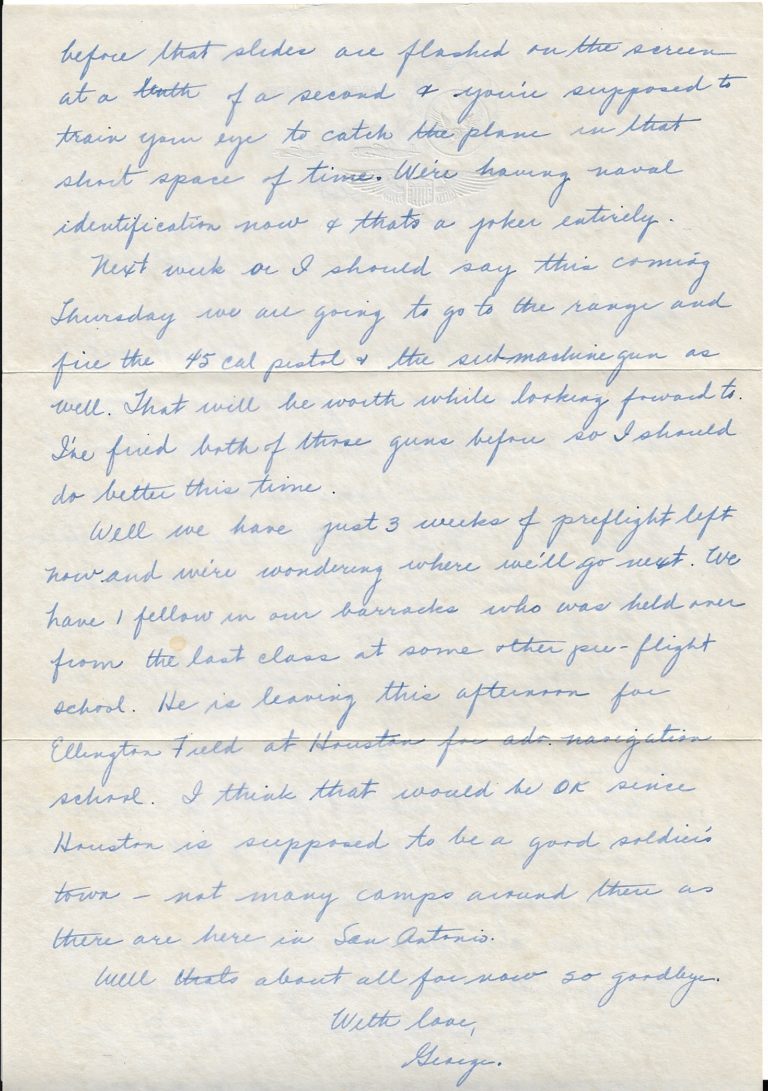 before that slides are flashed on the screen
at a tenth of a second & you're supposed to
train your eye to catch the plane in that
short space of time. We're having naval
identification now & thats a joker entirely.
Next week or I should say this coming
Thursday we are going to go to the range and
fire the 45 cal pistol & the submachine gun as
well. That will be worth while looking forward to.
I've fired both of those guns before so I should
do better this time.
Well we have just 3 weeks of preflight left
now and we're wondering where we'll go next. We
have 1 fellow in our barracks who was held over
from the last class at some other pre-flight
school. He is leaving this afternoon for
Ellington Field at Houston for adv. navigation
school. I think that would be OK since
Houston is supposed to be a good soldier's
town - not many camps around there as
there are here in San Antonio.
Well thats about all for now so goodbye.
With love,
George.